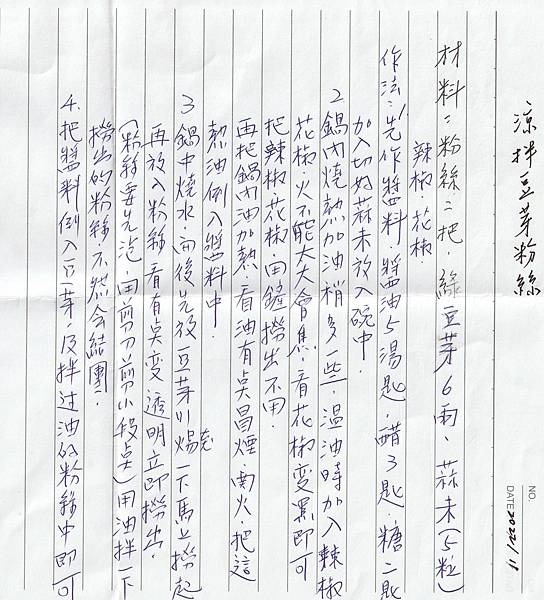 涼拌豆芽粉絲
材料：粉絲二把．綠豆芽6兩、蒜末(5粒)
辣椒．花椒．
作法：1.先作醬料．醬油5湯匙．醋3匙．糖二匙
加入切好蒜末放入碗中．
2.鍋內燒熱加油稍多一些．温油時加入辣椒
花椒．火不能太大會焦．看花椒变黑即可
把辣椒花椒．用鏟撈出不用．
再把鍋內油加熱．看油有点冒煙．関火．把這
熱油倒入醬料中．
3.鍋中燒水．而後先放豆芽川燙一下馬上撈起
再放入粉絲看有点变透明立即撈出．
(粉絲要先泡．用剪刀剪小段点)用油拌一下
撈出的粉絲不然会結團．
4.把醬料倒入豆芽．及拌过油的粉絲中即可
NO.
DATE 2022/11